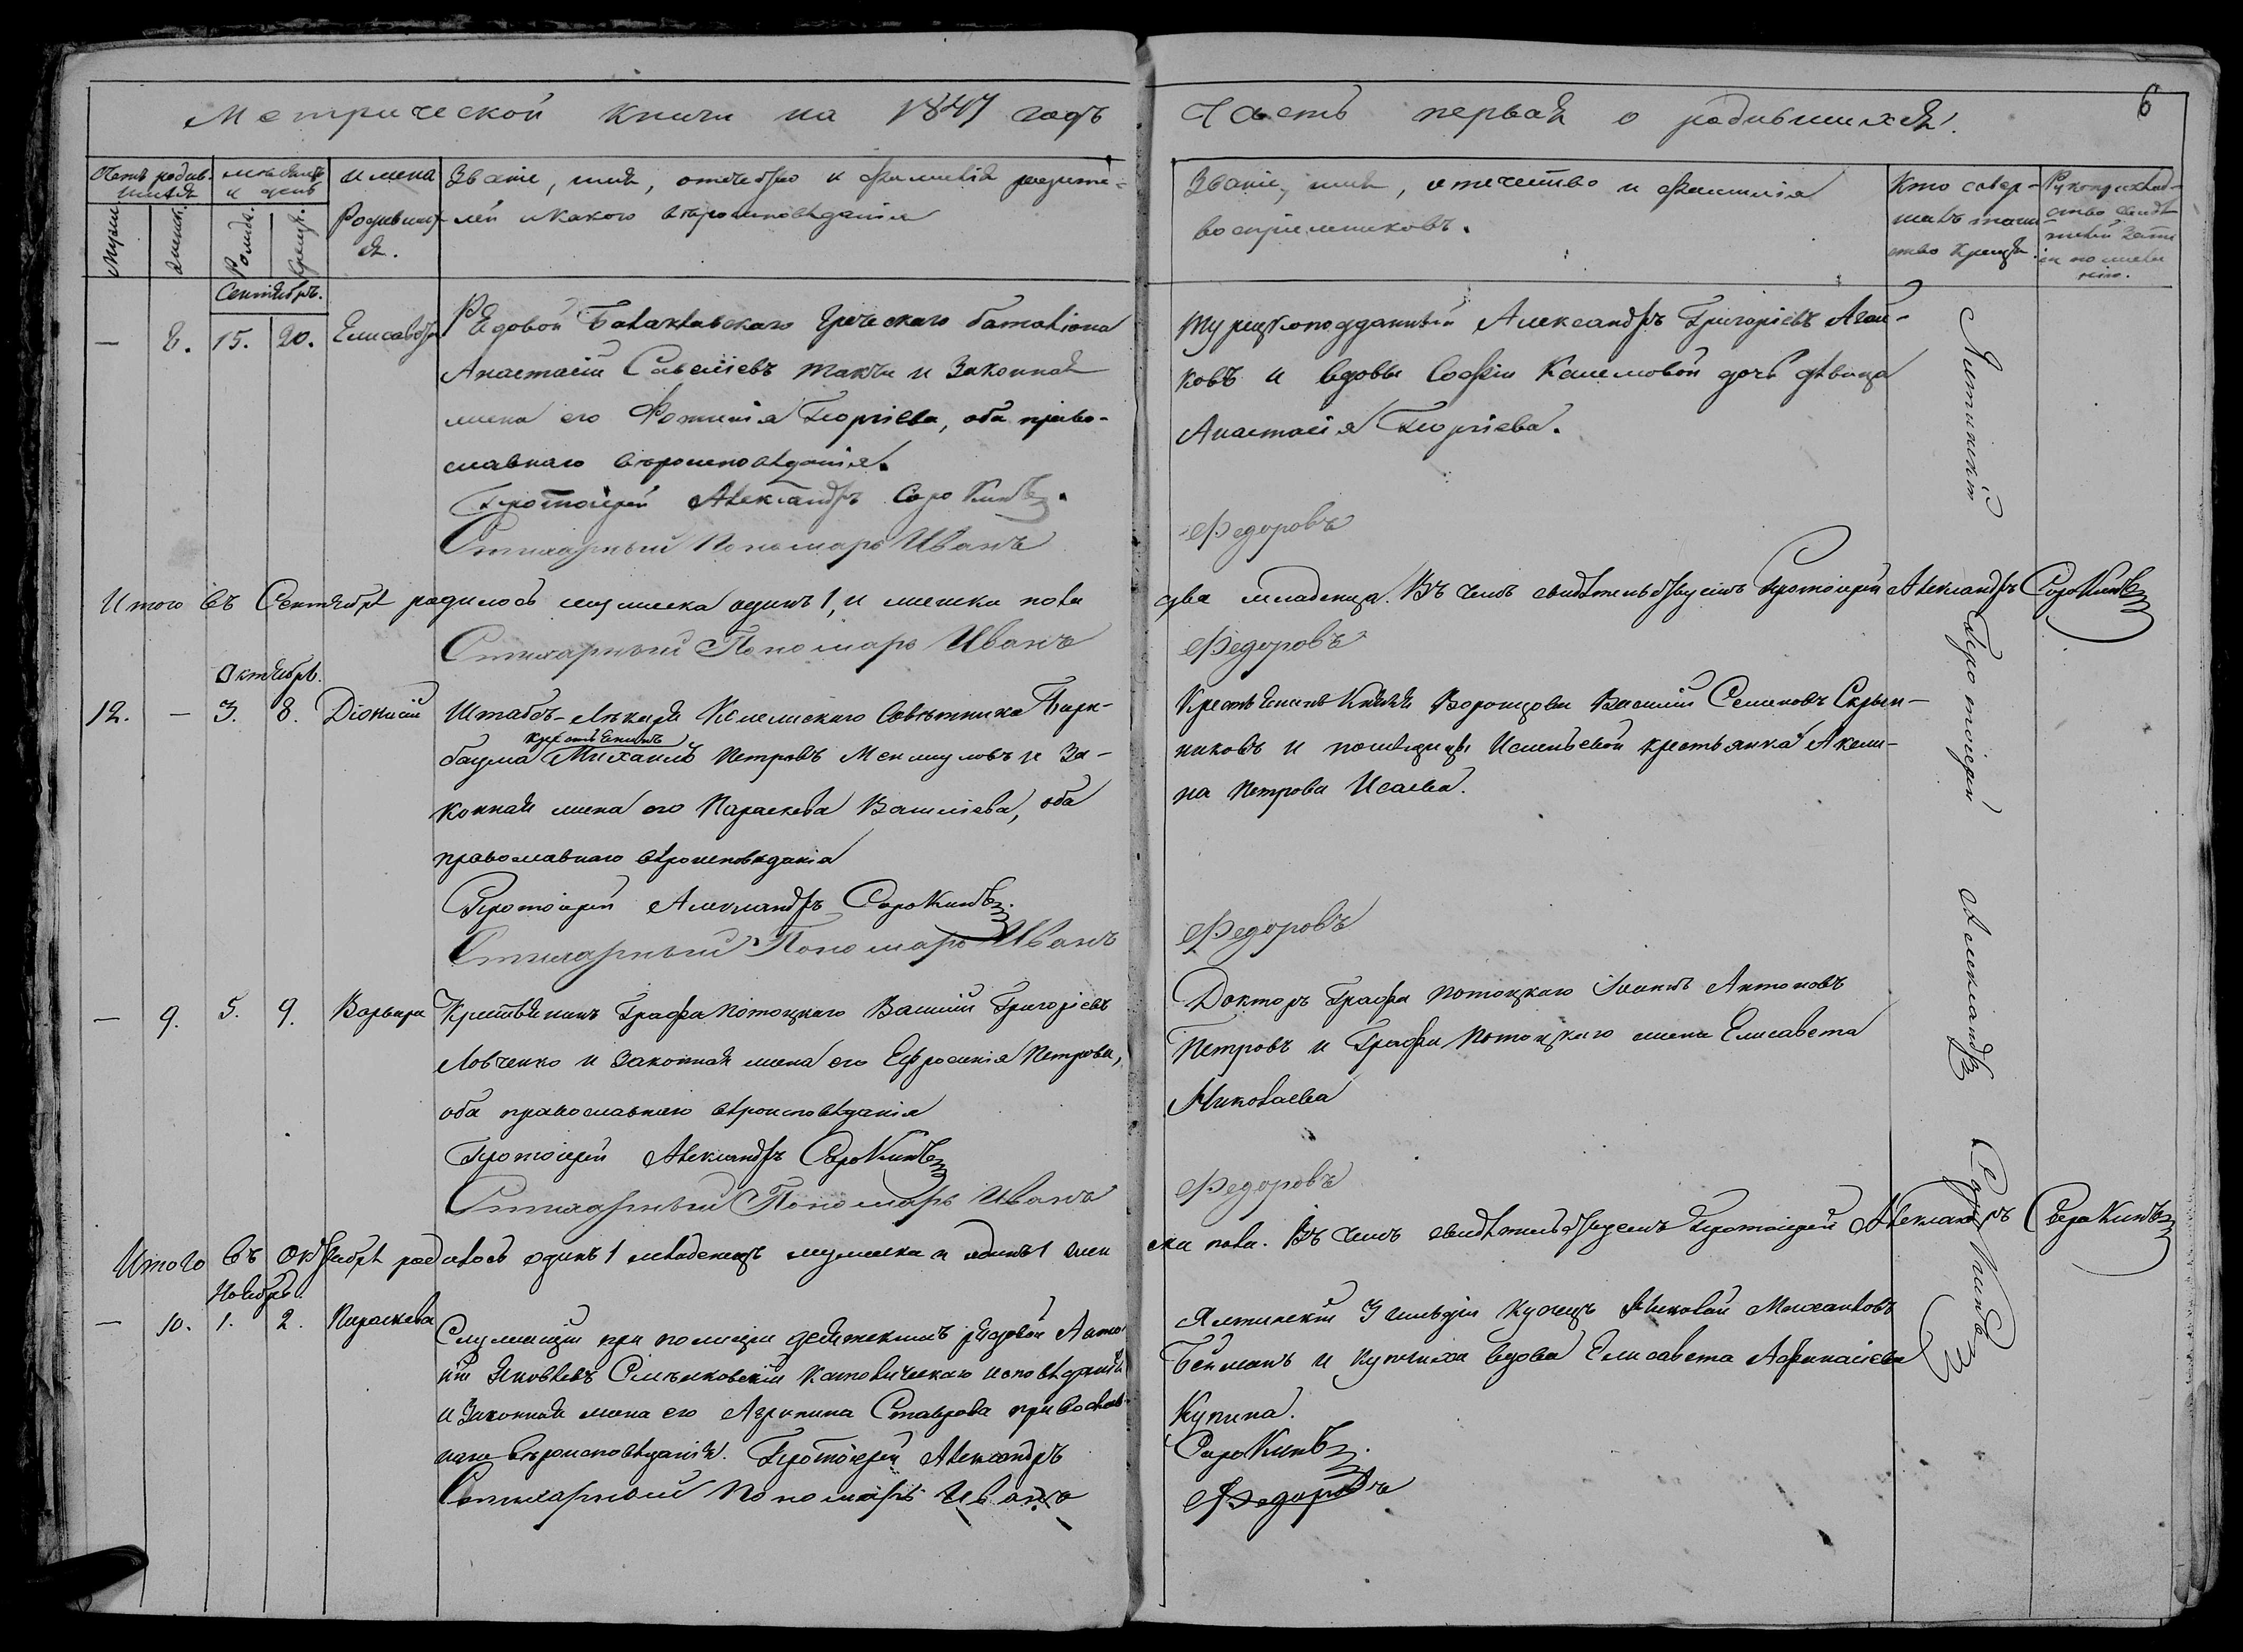 Метрической книги на 1847 годъ
Часть первая о родившихся.
6
Счетъ родив-
шихся
Мужск.
Женск.
месяцъ
и день
Рожд.
Крещ.
имена
Родивших-
ся.
Званіе, имя, отечество и фамилія родите-
лей и какого вѣроисповѣданія
Званіе, имя, отечество и фамилія
воспріемниковъ.
Кто совер-
шалъ таин-
ство крещен.
Рукоприклад-
ство свидѣ-
телей записи
по желанію.
Сентябрь.
— 8. 15. 20. Елисавета
Рядовой Балаклавскаго Греческаго баталіона
Анастасій Савеліевъ Такчи и Законная
жена его Фотинія Георгіева, оба право-
славнаго вѣроисповѣданія.
Протоіерей Александръ Сорокинъ.
Стихарный Пономарь Иванъ
Турецкоподданный Александръ Григоріевъ
и вдовы Софіи дочь дѣвица
Анастасія Георгіева.
Федоровъ
Итого въ Сентябрѣ родилось мужеска одинъ 1, и женска пола
два младенца. Въ чемъ свидѣтельствуемъ Протоіерей Александръ Сорокинъ
Стихарный Пономарь Иванъ
Федоровъ
Октябрь.
12. — 3. 8. Діонисій
Штабъ-лѣкаря Колежскаго Совѣтника
крестьянинъ
Михаилъ Петровъ и За-
конная жена его Параскева Василіева, оба
православнаго вѣроисповѣданія
Протоіерей Александръ Сорокинъ.
Стихарный Пономарь Иванъ
Крестьянинъ Князя Воронцова Василій Семеновъ Скрын-
никовъ и помѣщицы крестьянка Акили-
на Петрова Исаева.
Федоровъ
— 9. 5. 9. Варвара
Крестьянинъ Графа Потоцкаго Василій Григоріевъ
Ловченко и Законная жена его Ефросинія Петрова,
оба православнаго вѣроисповѣданія
Протоіерей Александръ Сорокинъ
Стихарный Пономарь Иванъ
Докторъ Графа Потоцкаго Іоаннъ Антоновъ
Петровъ и Графа Потоцкаго жена Елисавета
Николаева
Федоровъ
Итого въ Октябрѣ родилось одинъ 1 младенецъ мужеска и одинъ 1 жен
ска пола. Въ чемъ свидѣтельствуемъ Протоіерей Александръ Сорокинъ
Ноябрь.
— 10. 1. 2. Параскева
Служащій при полиціи рядовой Анто-
ній Яковлевъ Католическаго исповѣданія
и Законная жена его Агрипина Ставрова православ-
наго вѣроисповѣданія. Протоіерей Александръ
Стихарный Пономарь Иванъ
Ялтинскій 3 гильдіи купецъ Николай Михайловъ
и купчиха вдова Елисавета Афанасіева
Купина.
Сорокинъ.
Федоровъ
Ялтинскій Протоіерей Александръ Сорокинъ